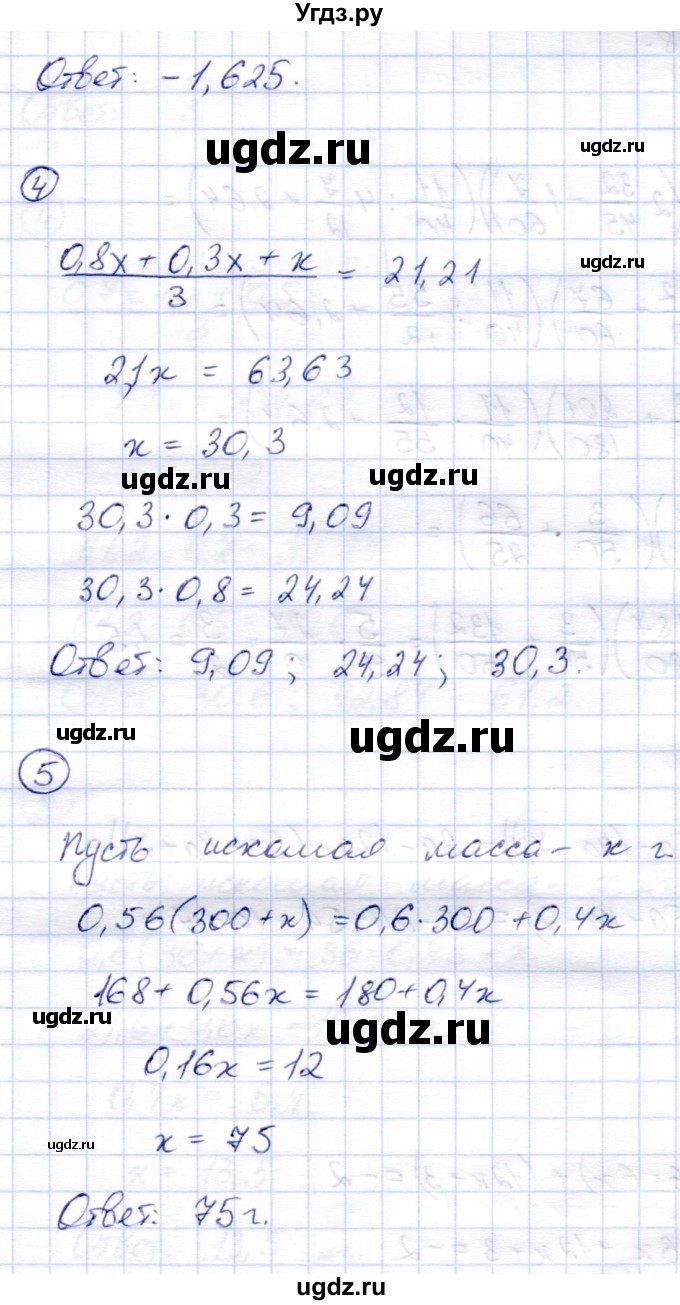 Угдз.ру
Ответ: -1,625.
ugdz.ru
ugdz.ru
4
ugdz.ru
(0,8x + 0,3x + x)/3 = 21,21
2,1x = 63,63
x = 30,3
ugdz.ru
ugdz.ru
30,3 · 0,3 = 9,09
30,3 · 0,8 = 24,24
Ответ: 9,09; 24,24; 30,3.
ugdz.ru
ugdz.ru
5
Пусть искомая масса - x г.
0,56(300+x) = 0,6·300 + 0,4x
168 + 0,56x = 180 + 0,4x
ugdz.ru
ugdz.ru
0,16x = 12
ugdz.ru
x = 75
Ответ: 75 г.
ugdz.ru